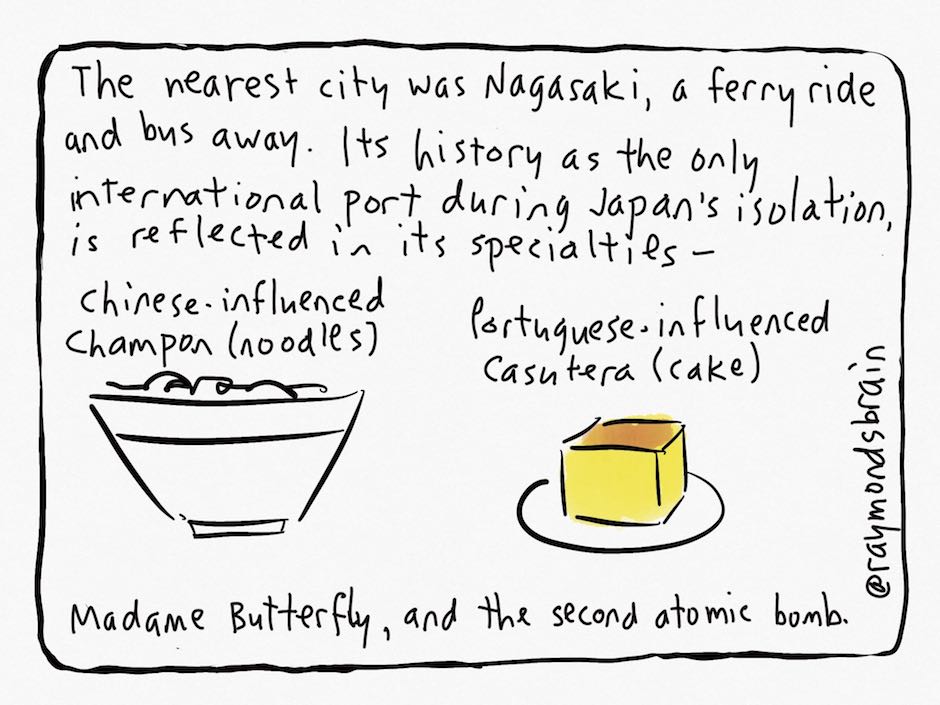 The nearest city was Nagasaki, a ferry ride
and bus away. Its history as the only
international port during Japan's isolation,
is reflected in its specialties –
Chinese-influenced
Champon (noodles)
Portuguese-influenced
Casutera (cake)
@raymondsbrain
Madame Butterfly, and the second atomic bomb.